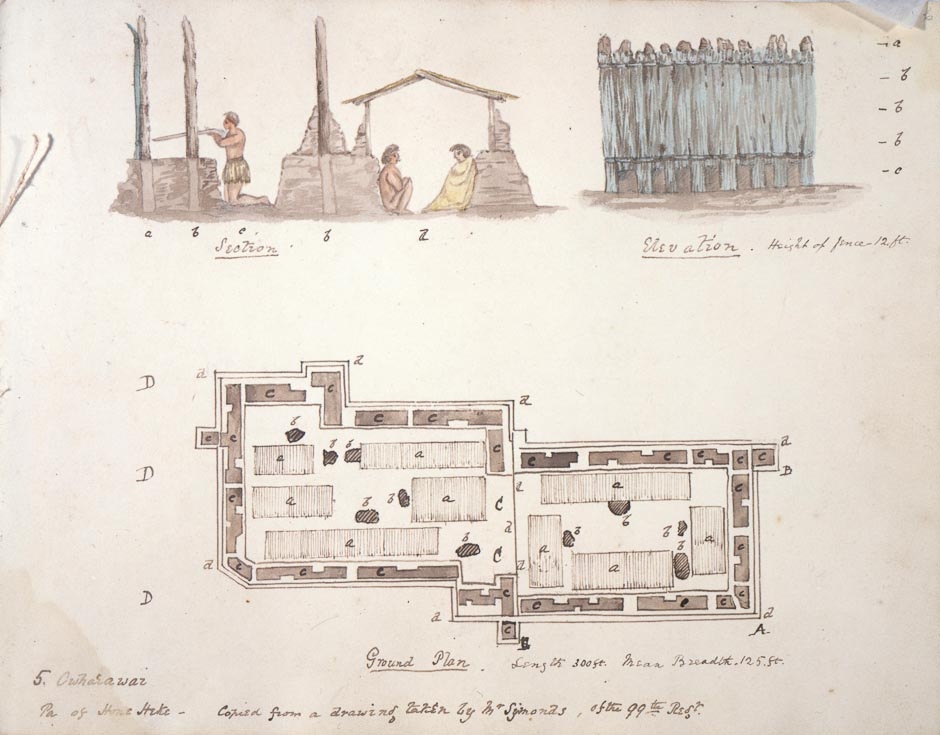 a
b
b
b
c
a b c b d
Section.
Elevation. Height of fence 12 ft.
D
D
D
d
d
d
d
d
d
d
d
d
B
A
B
c c c c c c c c c c c c c c c c c c c c c
a a a a a a a a a
b b b b b b b b b b
C
C
Ground Plan. Length 300 ft. Mean Breadth. 125. ft.
5. Owharawai
Pa of Hone Heke - Copied from a drawing taken by Mr Symonds, of the 99th Regt.